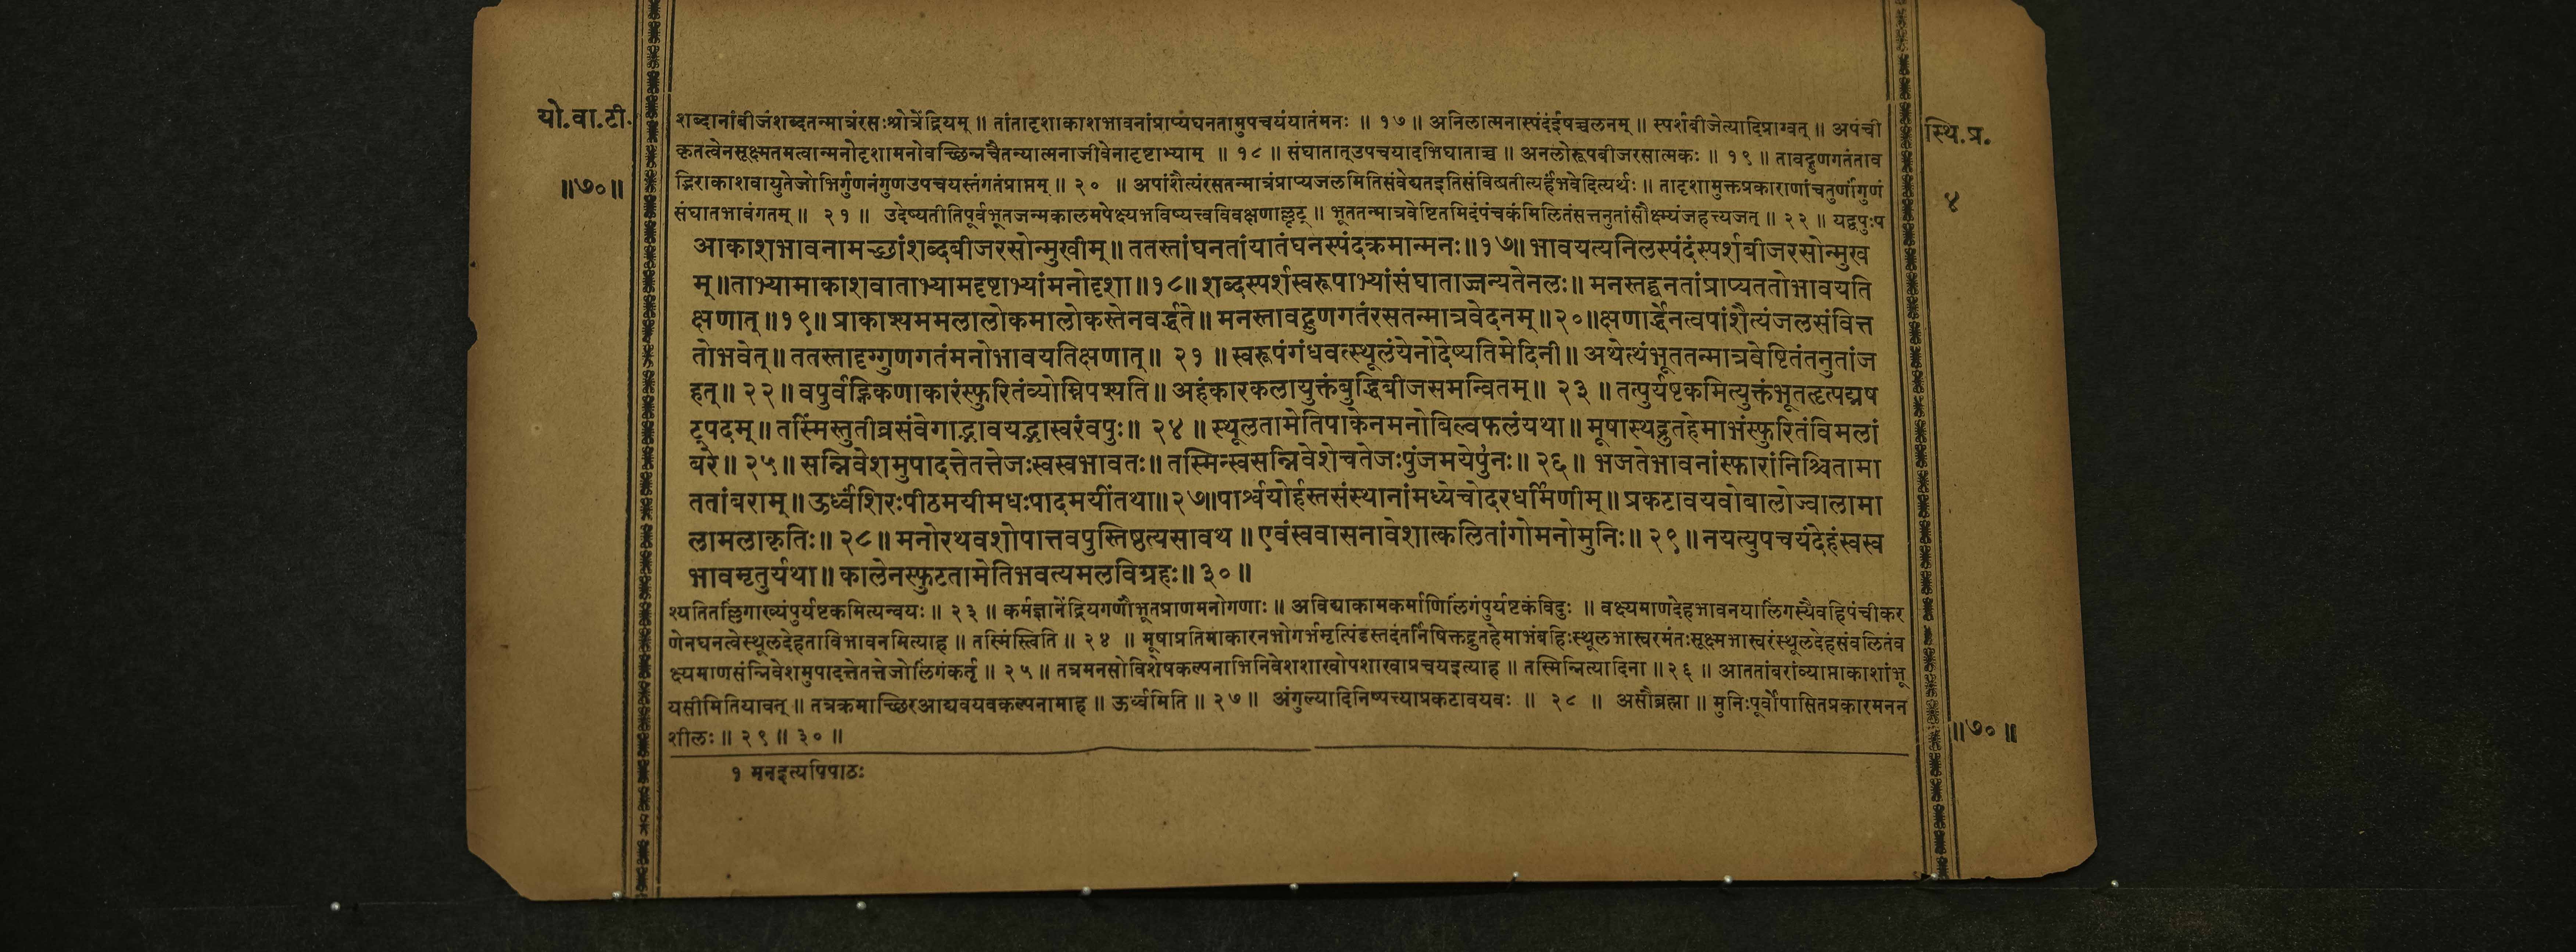 यो.वा.टी.
॥७०॥
स्थि.प्र.
४
शब्दानांबीजंशब्दतन्मात्रंरसःश्रोत्रेंद्रियम् ॥ तांतादृशाकाशभावनांप्राप्यंघनतामुपचयंयातंमनः ॥ १७ ॥ अनिलात्मनास्पंदंईषच्चलनम् ॥ स्पर्शबीजेत्यादिप्राग्वत् ॥ अपंची
कृतत्वेनसूक्ष्मतमत्वान्मनोदृशामनोवच्छिन्नचैतन्यात्मनाजीवेनादृष्टाभ्याम् ॥ १८ ॥ संघातात्उपचयादभिघाताच्च ॥ अनलोरूपबीजरसात्मकः ॥ १९ ॥ तावद्गुणगतंताव
द्भिराकाशवायुतेजोभिर्गुणनंगुणउपचयस्तंगतंप्राप्तम् ॥ २० ॥ अपांशैत्यंरसतन्मात्रंप्राप्यजलमितिसंवेद्यतइतिसंवित्प्रतीत्यर्हंभवेदित्यर्थः ॥ तादृशामुक्तप्रकाराणांचतुर्णांगुणं
संघातभावंगतम् ॥ २१ ॥ उदेष्यतीतिपूर्वभूतजन्मकालमपेक्ष्यभविष्यत्त्वविवक्षणाल्लृट् ॥ भूततन्मात्रवेष्टितमिदंपंचकंमिलितंसत्तनुतांसौक्ष्म्यंजहत्त्यजत् ॥ २२ ॥ यद्वपुःप
आकाशभावनामच्छांशब्दबीजरसोन्मुखीम्॥ ततस्तांघनतांयातंघनस्पंदक्रमान्मनः॥१७॥ भावयत्यनिलस्पंदंस्पर्शबीजरसोन्मुख
म्॥ताभ्यामाकाशवाताभ्यामदृष्टाभ्यांमनोदृशा॥१८॥ शब्दस्पर्शस्वरूपाभ्यांसंघाताज्जन्यतेनलः॥ मनस्तद्घनतांप्राप्यततोभावयति
क्षणात्॥१९॥ प्राकाश्यममलालोकमालोकस्तेनवर्द्धते॥ मनस्तावद्गुणगतंरसतन्मात्रवेदनम्॥२०॥क्षणार्द्धेनत्वपांशैत्यंजलसंवित्त
तोभवेत्॥ ततस्तादृग्गुणगतंमनोभावयतिक्षणात्॥ २१ ॥ स्वरूपंगंधवत्स्थूलंयेनोदेष्यतिमेदिनी॥ अथेत्थंभूततन्मात्रवेष्टितंतनुतांज
हत्॥ २२॥ वपुर्वह्निकणाकारंस्फुरितंव्योम्निपश्यति॥ अहंकारकलायुक्तंबुद्धिबीजसमन्वितम्॥ २३ ॥ तत्पुर्यष्टकमित्युक्तंभूतहृत्पद्मष
ट्पदम्॥ तस्मिंस्तुतीव्रसंवेगाद्भावयद्भास्वरंवपुः॥ २४ ॥ स्थूलतामेतिपाकेनमनोबिल्वफलंयथा॥ मूषास्थद्रुतहेमाभंस्फुरितंविमलां
बरे॥ २५॥ सन्निवेशमुपादत्तेतत्तेजःस्वस्वभावतः॥ तस्मिन्स्वसन्निवेशेचतेजःपुंजमयेपुंनः॥ २६॥ भजतेभावनांस्फारांनिश्चितामा
ततांबराम्॥ ऊर्ध्वंशिरःपीठमयीमधःपादमयींतथा॥२७॥पार्श्वयोर्हस्तसंस्थानांमध्येचोदरधर्मिणीम्॥ प्रकटावयवोबालोज्वालामा
लामलाकृतिः॥ २८॥ मनोरथवशोपात्तवपुस्तिष्ठत्यसावथ ॥ एवंस्ववासनावेशात्कलितांगोमनोमुनिः॥ २९॥ नयत्युपचयंदेहंस्वस्व
भावमृतुर्यथा॥ कालेनस्फुटतामेतिभवत्यमलविग्रहः॥ ३०॥
श्यतितल्लिंगाख्यंपुर्यष्टकमित्यन्वयः ॥ २३ ॥ कर्मज्ञानेंद्रियगणौभूतप्राणमनोगणाः ॥ अविद्याकामकर्माणिलिंगंपुर्यष्टकंविदुः ॥ वक्ष्यमाणदेहभावनयालिंगस्थैवहिपंचीकर
णेनघनत्वेस्थूलदेहताविभावनमित्याह ॥ तस्मिंस्त्विति ॥ २४ ॥ मूषाप्रतिमाकारनभोगर्भमृत्पिंडस्तदंतर्निषिक्तद्रुतहेमाभंबहिःस्थूलभास्वरमंतःसूक्ष्मभास्वरंस्थूलदेहसंवलितंव
क्ष्यमाणसंन्निवेशमुपादत्तेतत्तेजोलिंगंकर्तृ ॥ २५ ॥ तत्रमनसोविशेषकल्पनाभिनिवेशशाखोपशाखाप्रचयइत्याह ॥ तस्मिन्नित्यादिना ॥२६ ॥ आततांबरांव्याप्ताकाशांभू
यसीमितियावत् ॥ तत्रक्रमाच्छिरआद्यवयवकल्पनामाह ॥ ऊर्ध्वमिति ॥ २७ ॥ अंगुल्यादिनिष्पत्त्याप्रकटावयवः ॥ २८ ॥ असौब्रह्मा ॥ मुनिःपूर्वोपासितप्रकारमनन
शीलः ॥ २९ ॥ ३० ॥
॥७०॥
१ मनइत्यपिपाठः